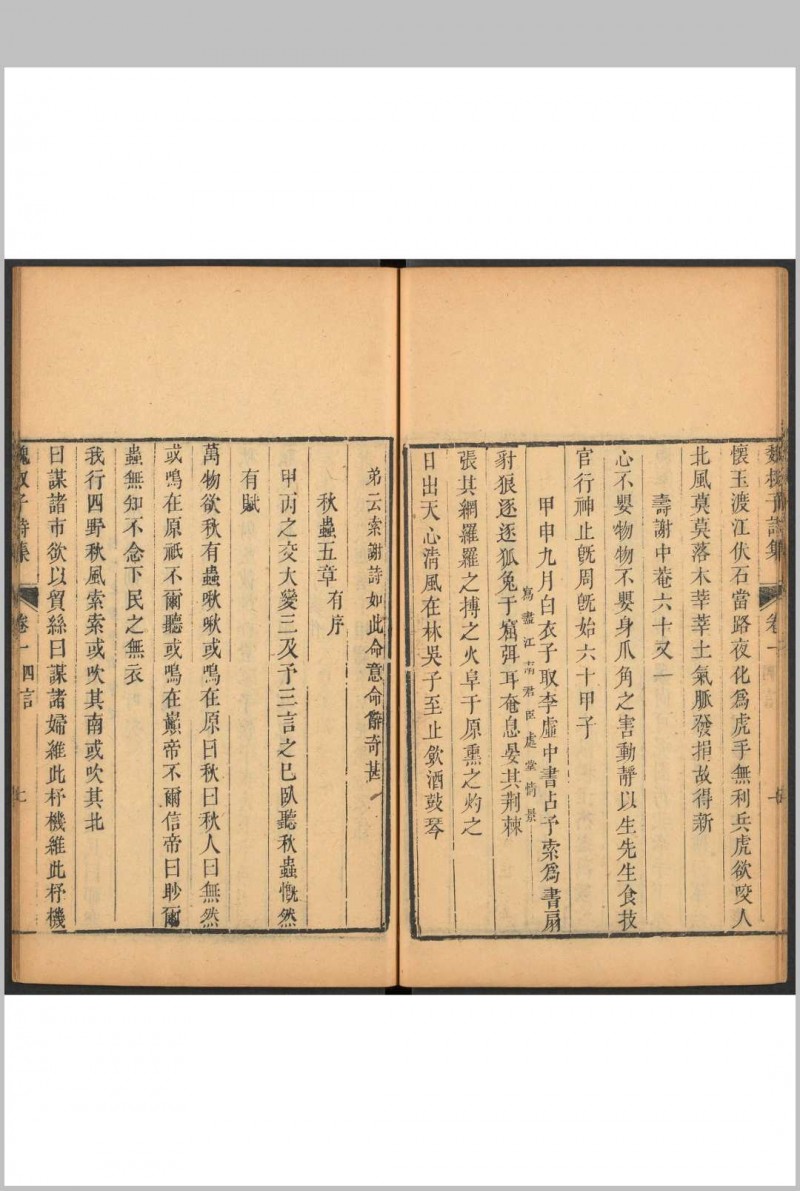 魏叔子詩集　卷一
懷玉渡江伏石當路夜化爲虎手無利兵虎欲咬人
北風莫莫落木莘莘土氣脈發捐故得新
壽謝中菴六十又一
心不嬰物物不嬰身爪角之害動靜以生先生食技
官行神止旣周旣始六十甲子
甲申九月白衣子取李虛中書占予索爲書扇
寫盡江南君臣處堂情景
豺狼逐逐狐兔于窟弭耳奄息晏其荆棘
張其網羅羅之搏之火阜于原熏之灼之
日出天心清風在林吳子至止飲酒鼓琴
弟云索謝詩如此命意命辭奇甚
秋蟲五章有序
甲丙之交大變三及予三言之巳臥聽秋蟲慨然
有賦
萬物欲秋有蟲啾啾或鳴在原曰秋曰秋人曰無然
或鳴在原祇不爾聽或鳴在巔帝不爾信帝曰眇爾
蟲無知不念下民之無衣
我行四野秋風索索或吹其南或吹其北
曰謀諸市欲以貿絲曰謀諸婦維此杼機維此杼機
魏叔子詩集　卷一　四言　七